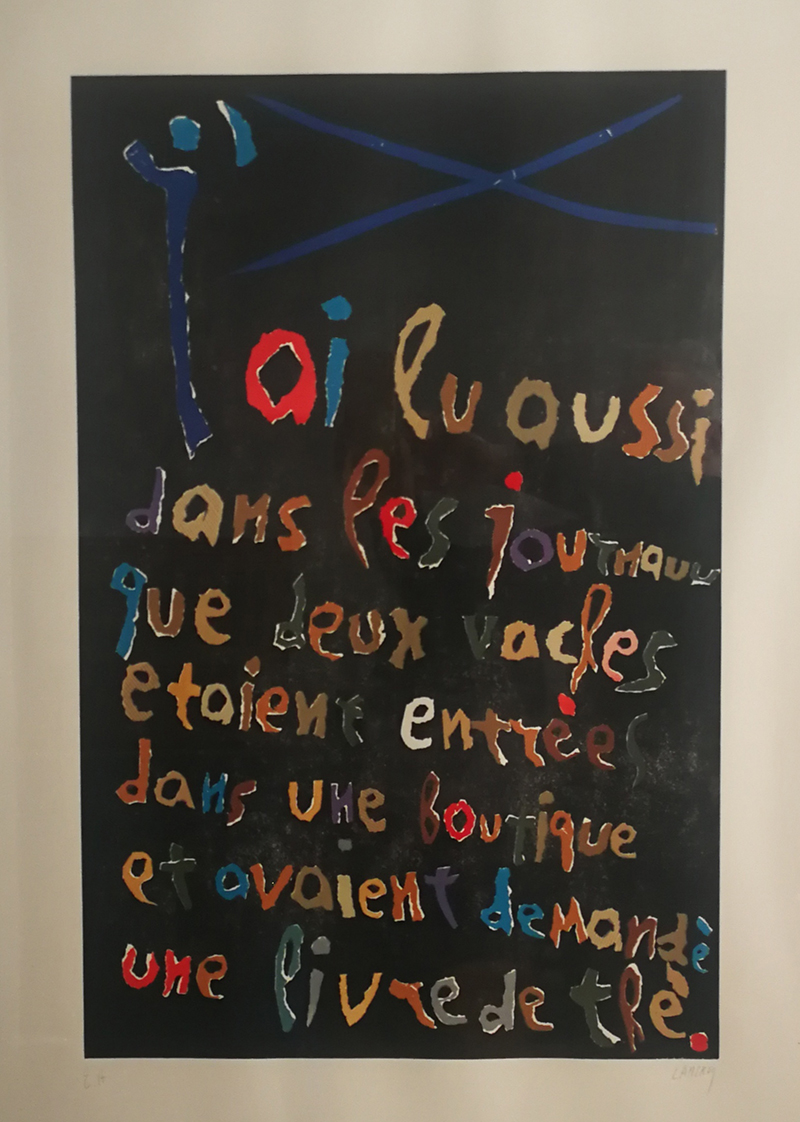 j'ai lu aussi
dans les journaux
que deux vaches
etaient entrèes
dans une boutique
et avaient demandè
une livre de thè.
EA
LANSKOY